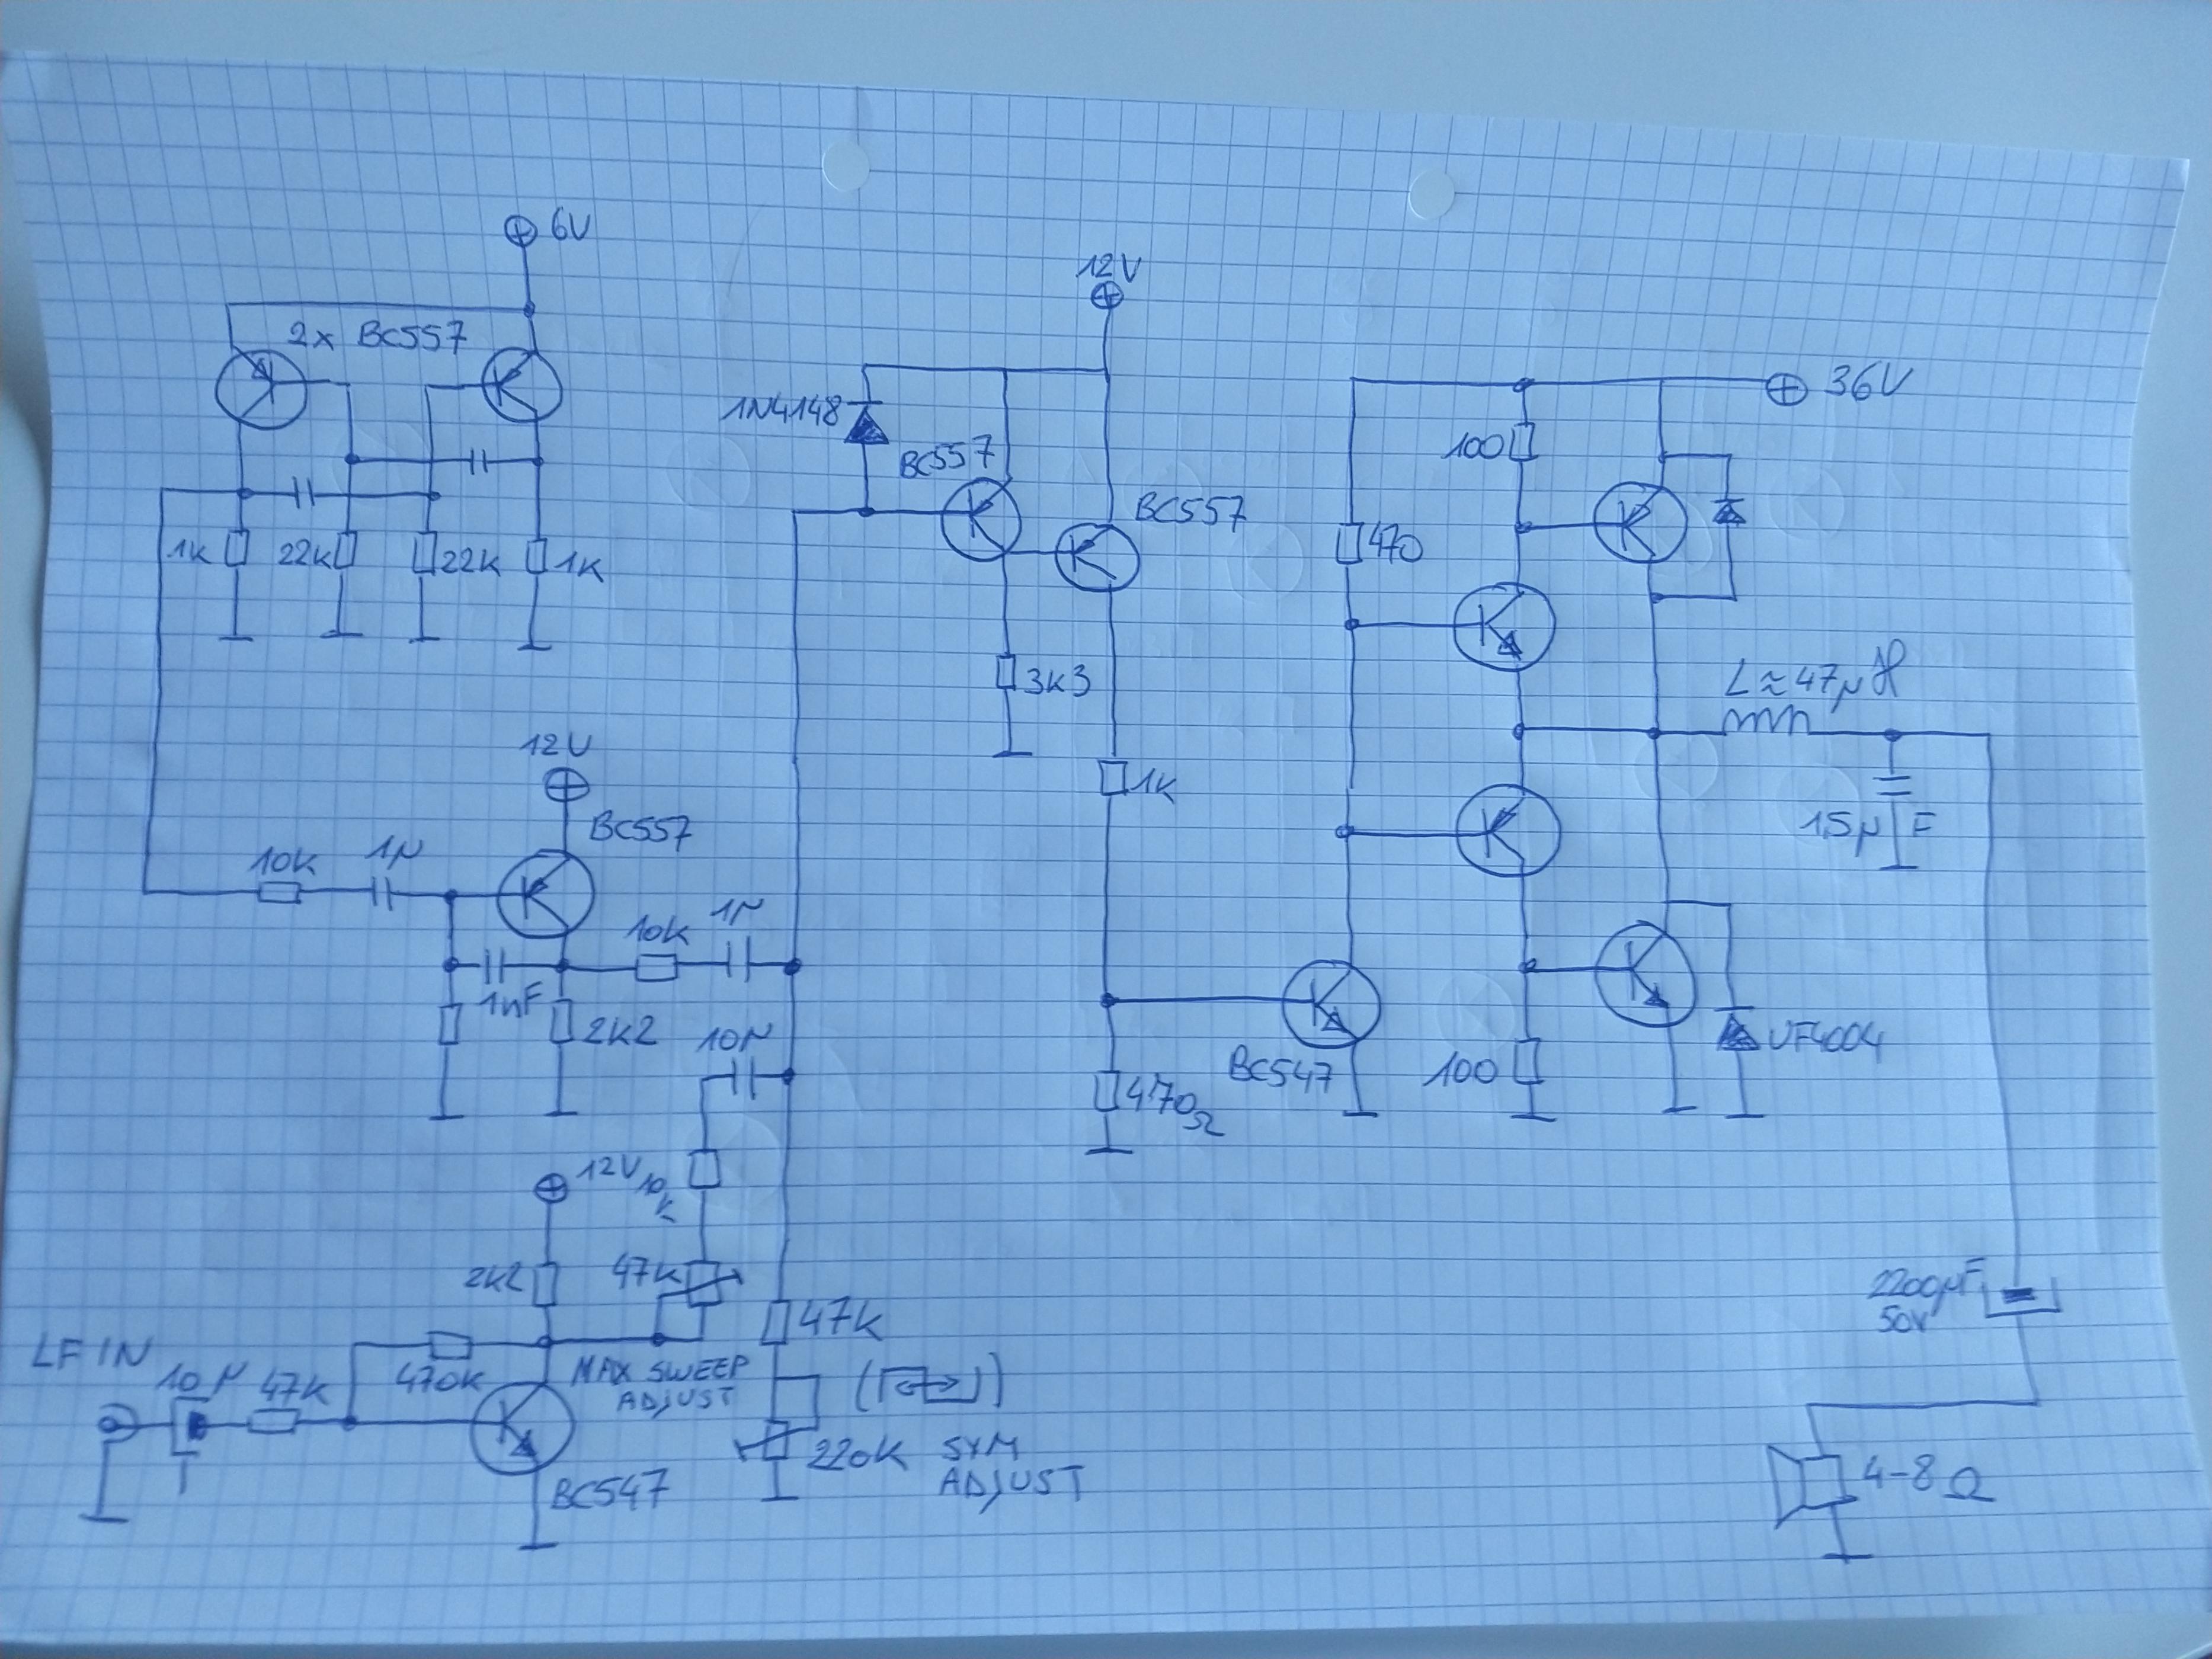 6V
2x BC557
1k
22k
22k
1k
12V
1N4148
BC557
BC557
3k3
1k
36V
100
470
L ≈ 47µH
1,5µF
12V
BC557
10k
1µ
1nF
2k2
10k
1µ
10µ
470Ω
BC547
100
UF4004
12V
10k
2k2
47k
47k
LF IN
10µ
47k
470k
MAX SWEEP
ADJUST
BC547
220k
SYM
ADJUST
2200µF
50V
4-8Ω